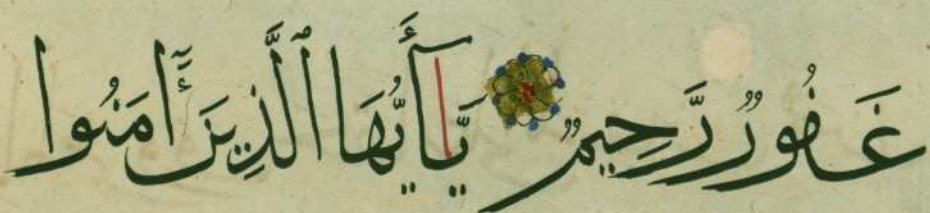 غَفُورٌ رَّحِيمٌ يَٰٓأَيُّهَا ٱلَّذِينَ ءَامَنُوا